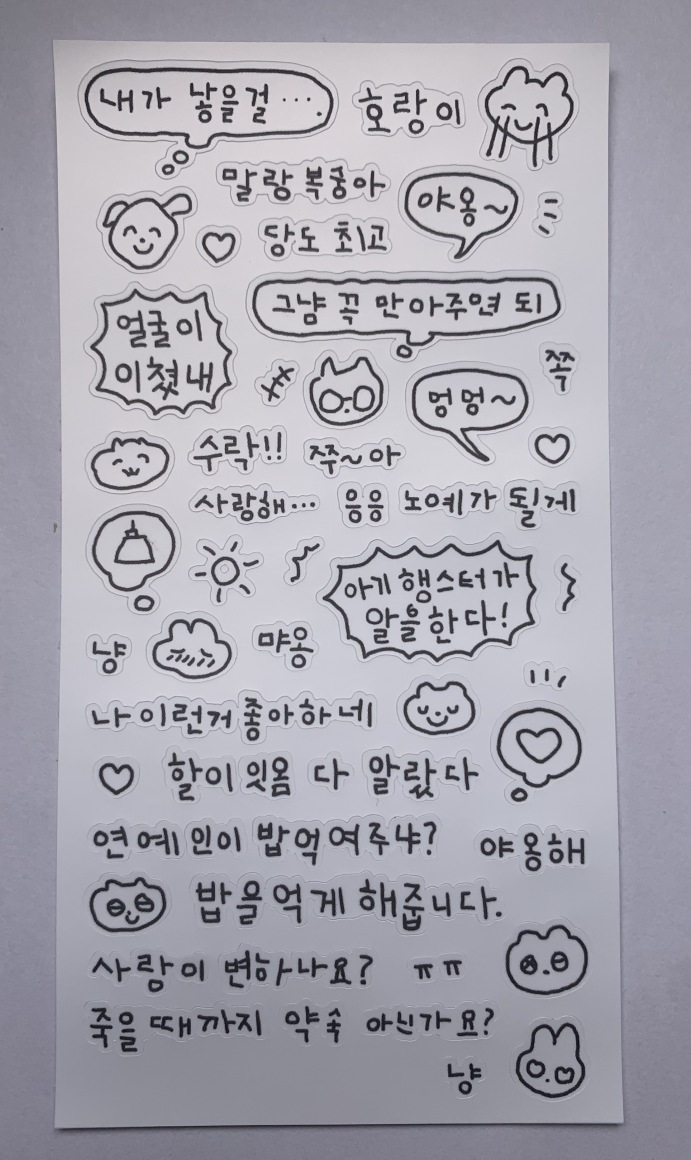 내가 낳을걸....
호랑이
말랑 복숭아
야옹~
당도 최고
그냥 꼭 안아주면 되
얼굴이
이쪘내
쪽
멍멍~
수락!!
쭈~아
사랑해...
응응
노예가 될게
아기 햄스터가
알을한다!
냥
먀옹
나 이런거 좋아하네
할이잇옴 다 알랐다
연예인이 밥먹여주냐?
야옹해
밥을먹게 해줍니다.
사람이 변하나요?
ㅠㅠ
죽을 때까지 약속 아닌가요?
냥